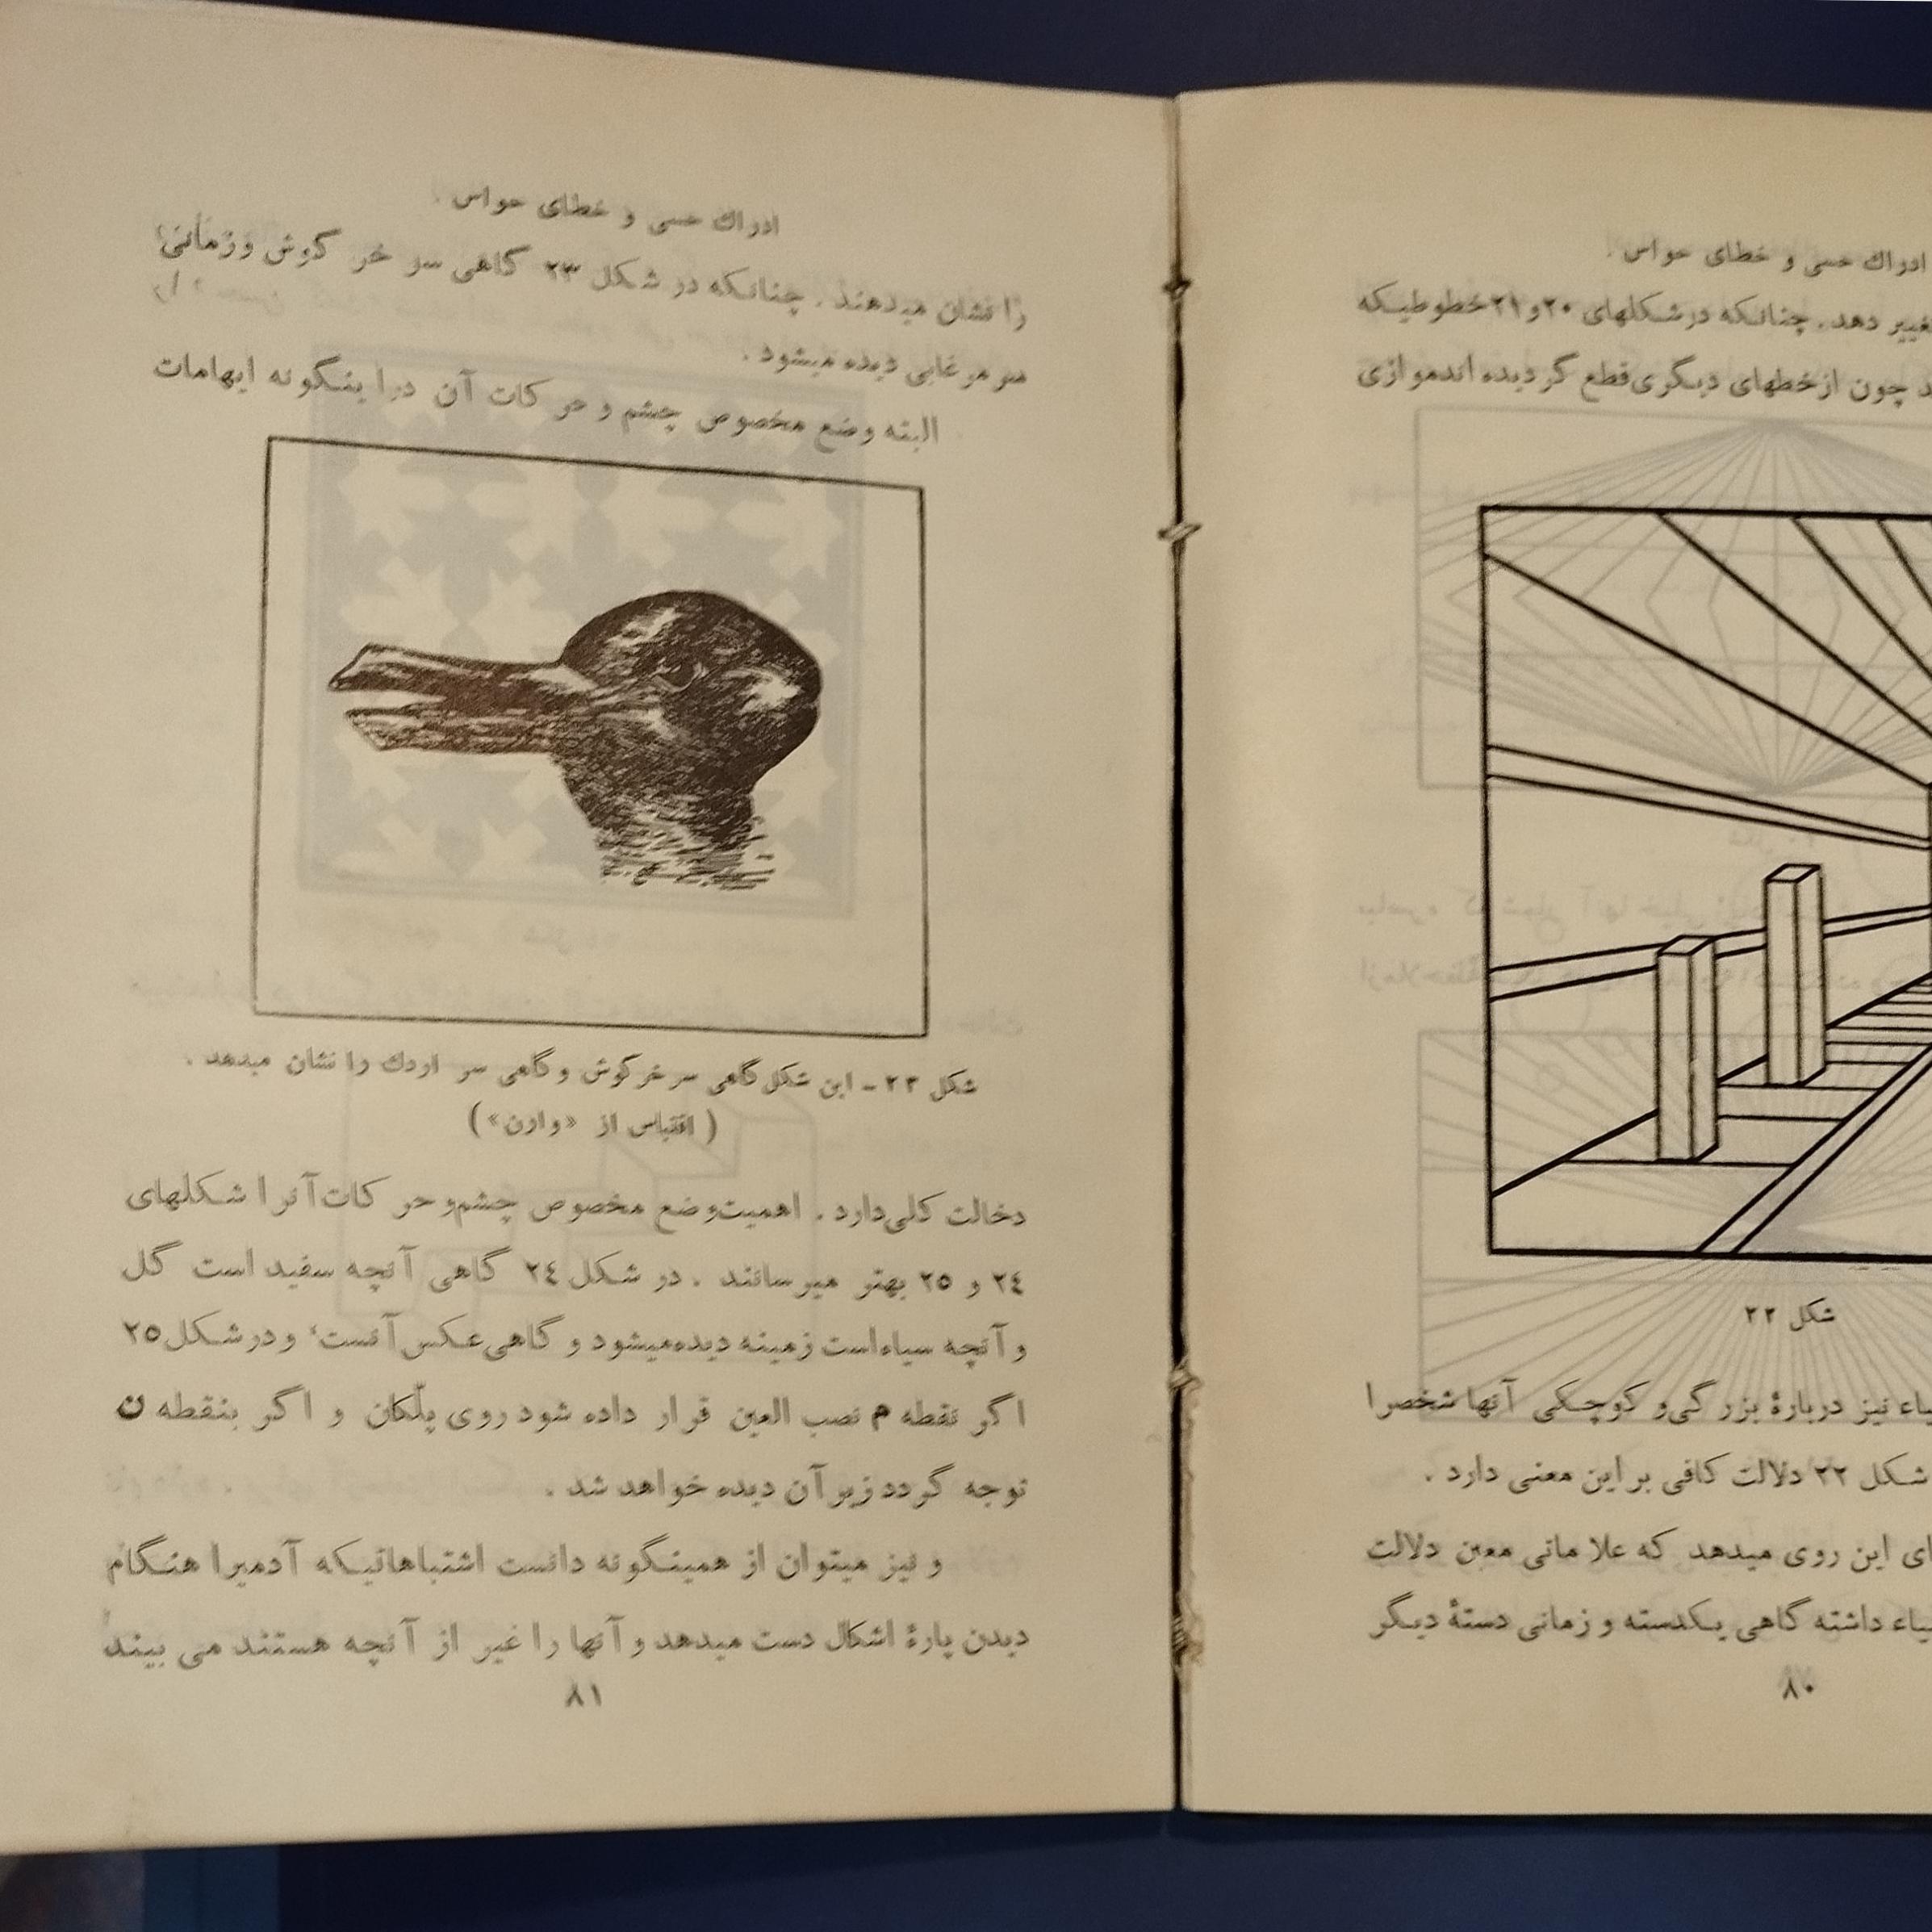 ادراك حسی و خطای حواس .
تغییر دهد . چنانکه در شکلهای ۲۰ و ۲۱ خطوطیکه
چون از خطهای دیگری قطع گردیده اند موازی
شکل ۲۲
نیز دربارهٔ بزرگی و کوچکی آنها شخص را
شکل ۲۲ دلالت کافی بر این معنی دارد .
این روی میدهد که علاماتی معین دلالت
داشته گاهی یکدسته و زمانی دستهٔ دیگر
۸۰
ادراك حسی و خطای حواس .
را نشان میدهند . چنانکه در شکل ۲۳ گاهی سر خر گوش و زمانی
سر مرغابی دیده میشود .
البته وضع مخصوص چشم و حر کات آن در اینگونه ایهامات
شکل ۲۳ ـ این شکل گاهی سر خر گوش و گاهی سر اردك را نشان میدهد .
( اقتباس از «وارن» )
دخالت کلی دارد . اهمیت وضع مخصوص چشم و حر کات آنرا شکلهای
۲٤ و ۲٥ بهتر میرسانند . در شکل ۲٤ گاهی آنچه سفید است گل
و آنچه سیاه است زمینه دیده میشود و گاهی عکس آنست ٬ و در شکل ۲٥
اگر نقطه م نصب العین قرار داده شود روی پلّکان و اگر بنقطه ن
توجه گردد زیر آن دیده خواهد شد .
و نیز میتوان از همینگونه دانست اشتباهاتیکه آدمیرا هنگام
دیدن پارهٔ اشکال دست میدهد و آنها را غیر از آنچه هستند می بیند
۸۱